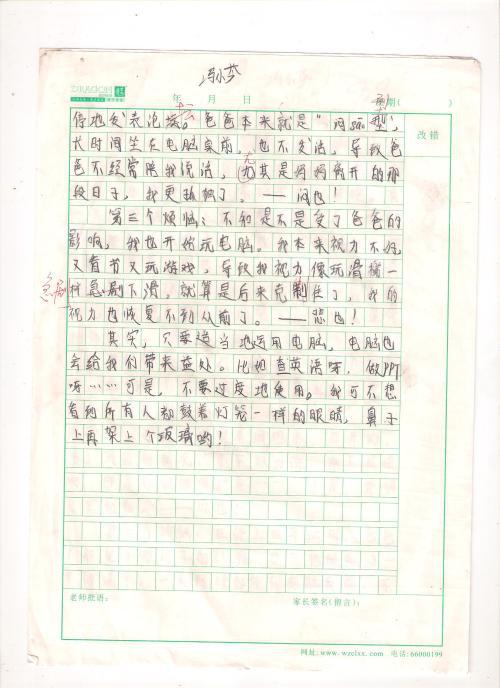 冯小芬
DRAGON
年 月 日 星期( )
改错
停地发表泡 爸爸本来就是“闷 型”，
长时间坐在电脑桌前，也不发活，导致爸
爸不经常陪我说话，尤其是妈妈离开的那
段日子，我更孤独了。——闷也！
第三个烦恼：不知是不是受了爸爸的
影响，我也开始玩电脑。我本来视力不好，
又看书又玩游戏，导致我视力像玩滑梯一
样急剧下滑。就算是后来克制住了，我的
视力也恢复不到从前了。——悲也！
急剧
其实，只要适当地运用电脑，电脑也
会给我们带来益处。比如查英语呀，做PPT
呀……可是，不要过度地使用。我可不想
看到所有人都鼓着灯笼一样的眼睛，鼻子
上再架上个玻璃哟！
老师批语： 家长签名(留言)：
网址：www.wzclxx.com 电话：66000199